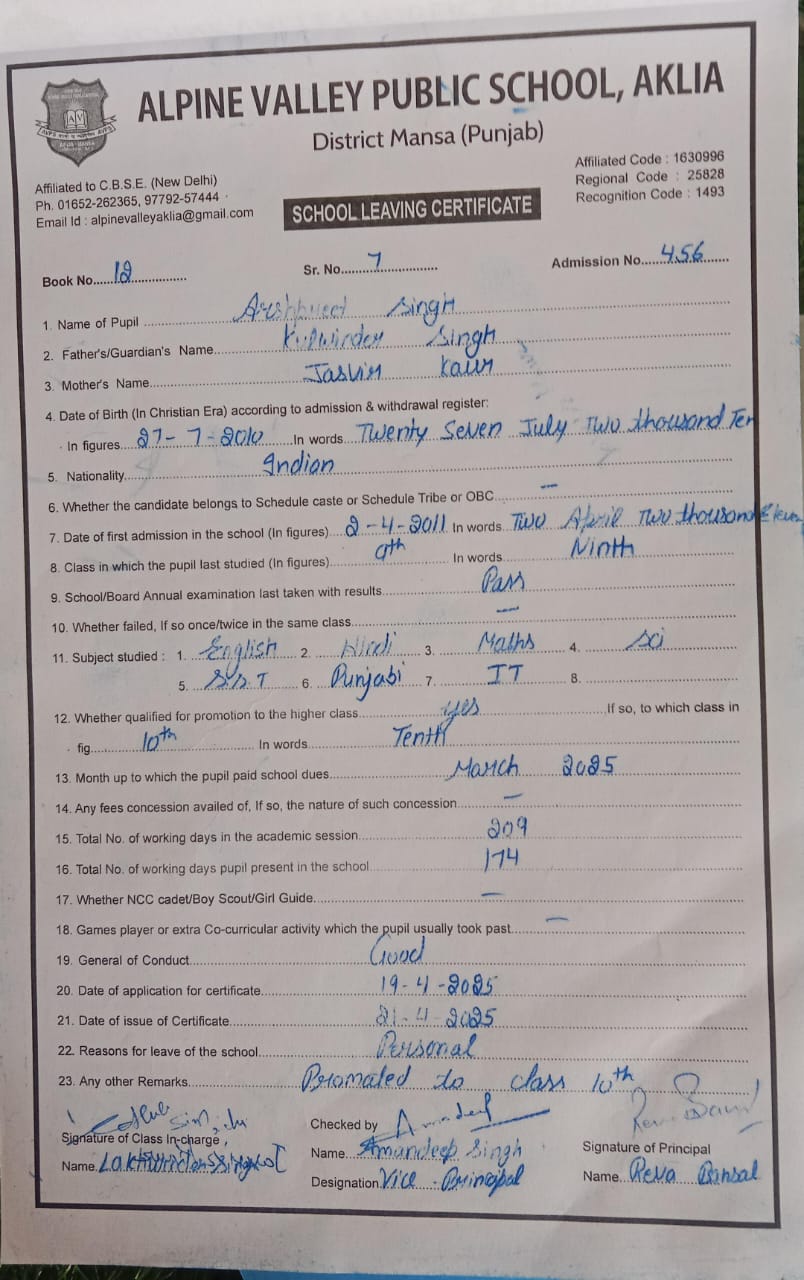 ALPINE VALLEY PUBLIC SCHOOL, AKLIA
District Mansa (Punjab)
Affiliated to C.B.S.E. (New Delhi)
Ph. 01652-262365, 97792-57444
Email Id : alpinevalleyaklia@gmail.com
Affiliated Code : 1630996
Regional Code : 25828
Recognition Code : 1493
SCHOOL LEAVING CERTIFICATE
Book No......12............... Sr. No.......7............... Admission No.....456......
1. Name of Pupil .......... Arshpreet Singh
2. Father's/Guardian's Name.......... Kulwinder Singh
3. Mother's Name.......... Jasvir Kaur
4. Date of Birth (In Christian Era) according to admission & withdrawal register:
In figures....27-7-2010.......In words...Twenty Seven July Two thousand Ten
5. Nationality.......... Indian
6. Whether the candidate belongs to Schedule caste or Schedule Tribe or OBC.... —
7. Date of first admission in the school (In figures)....2-4-2011 In words Two April Two thousand Eleven
8. Class in which the pupil last studied (In figures)....9th.... In words.... Ninth
9. School/Board Annual examination last taken with results.... Pass
10. Whether failed, If so once/twice in the same class.... —
11. Subject studied : 1. English 2. Hindi 3. Maths 4. Sci
5. S.S.T 6. Punjabi 7. IT 8.
12. Whether qualified for promotion to the higher class.... yes ....If so, to which class in
fig....10th.... In words.... Tenth
13. Month up to which the pupil paid school dues.... March 2025
14. Any fees concession availed of, If so, the nature of such concession.... —
15. Total No. of working days in the academic session.... 209
16. Total No. of working days pupil present in the school.... 174
17. Whether NCC cadet/Boy Scout/Girl Guide.... —
18. Games player or extra Co-curricular activity which the pupil usually took past.... —
19. General of Conduct.... Good
20. Date of application for certificate.... 19-4-2025
21. Date of issue of Certificate.... 21-4-2025
22. Reasons for leave of the school.... Personal
23. Any other Remarks.... Promoted to class 10th
Signature of Class In-charge
Name.
Checked by
Name....Amandeep Singh
Designation Vice Principal
Signature of Principal
Name...Reva Bansal